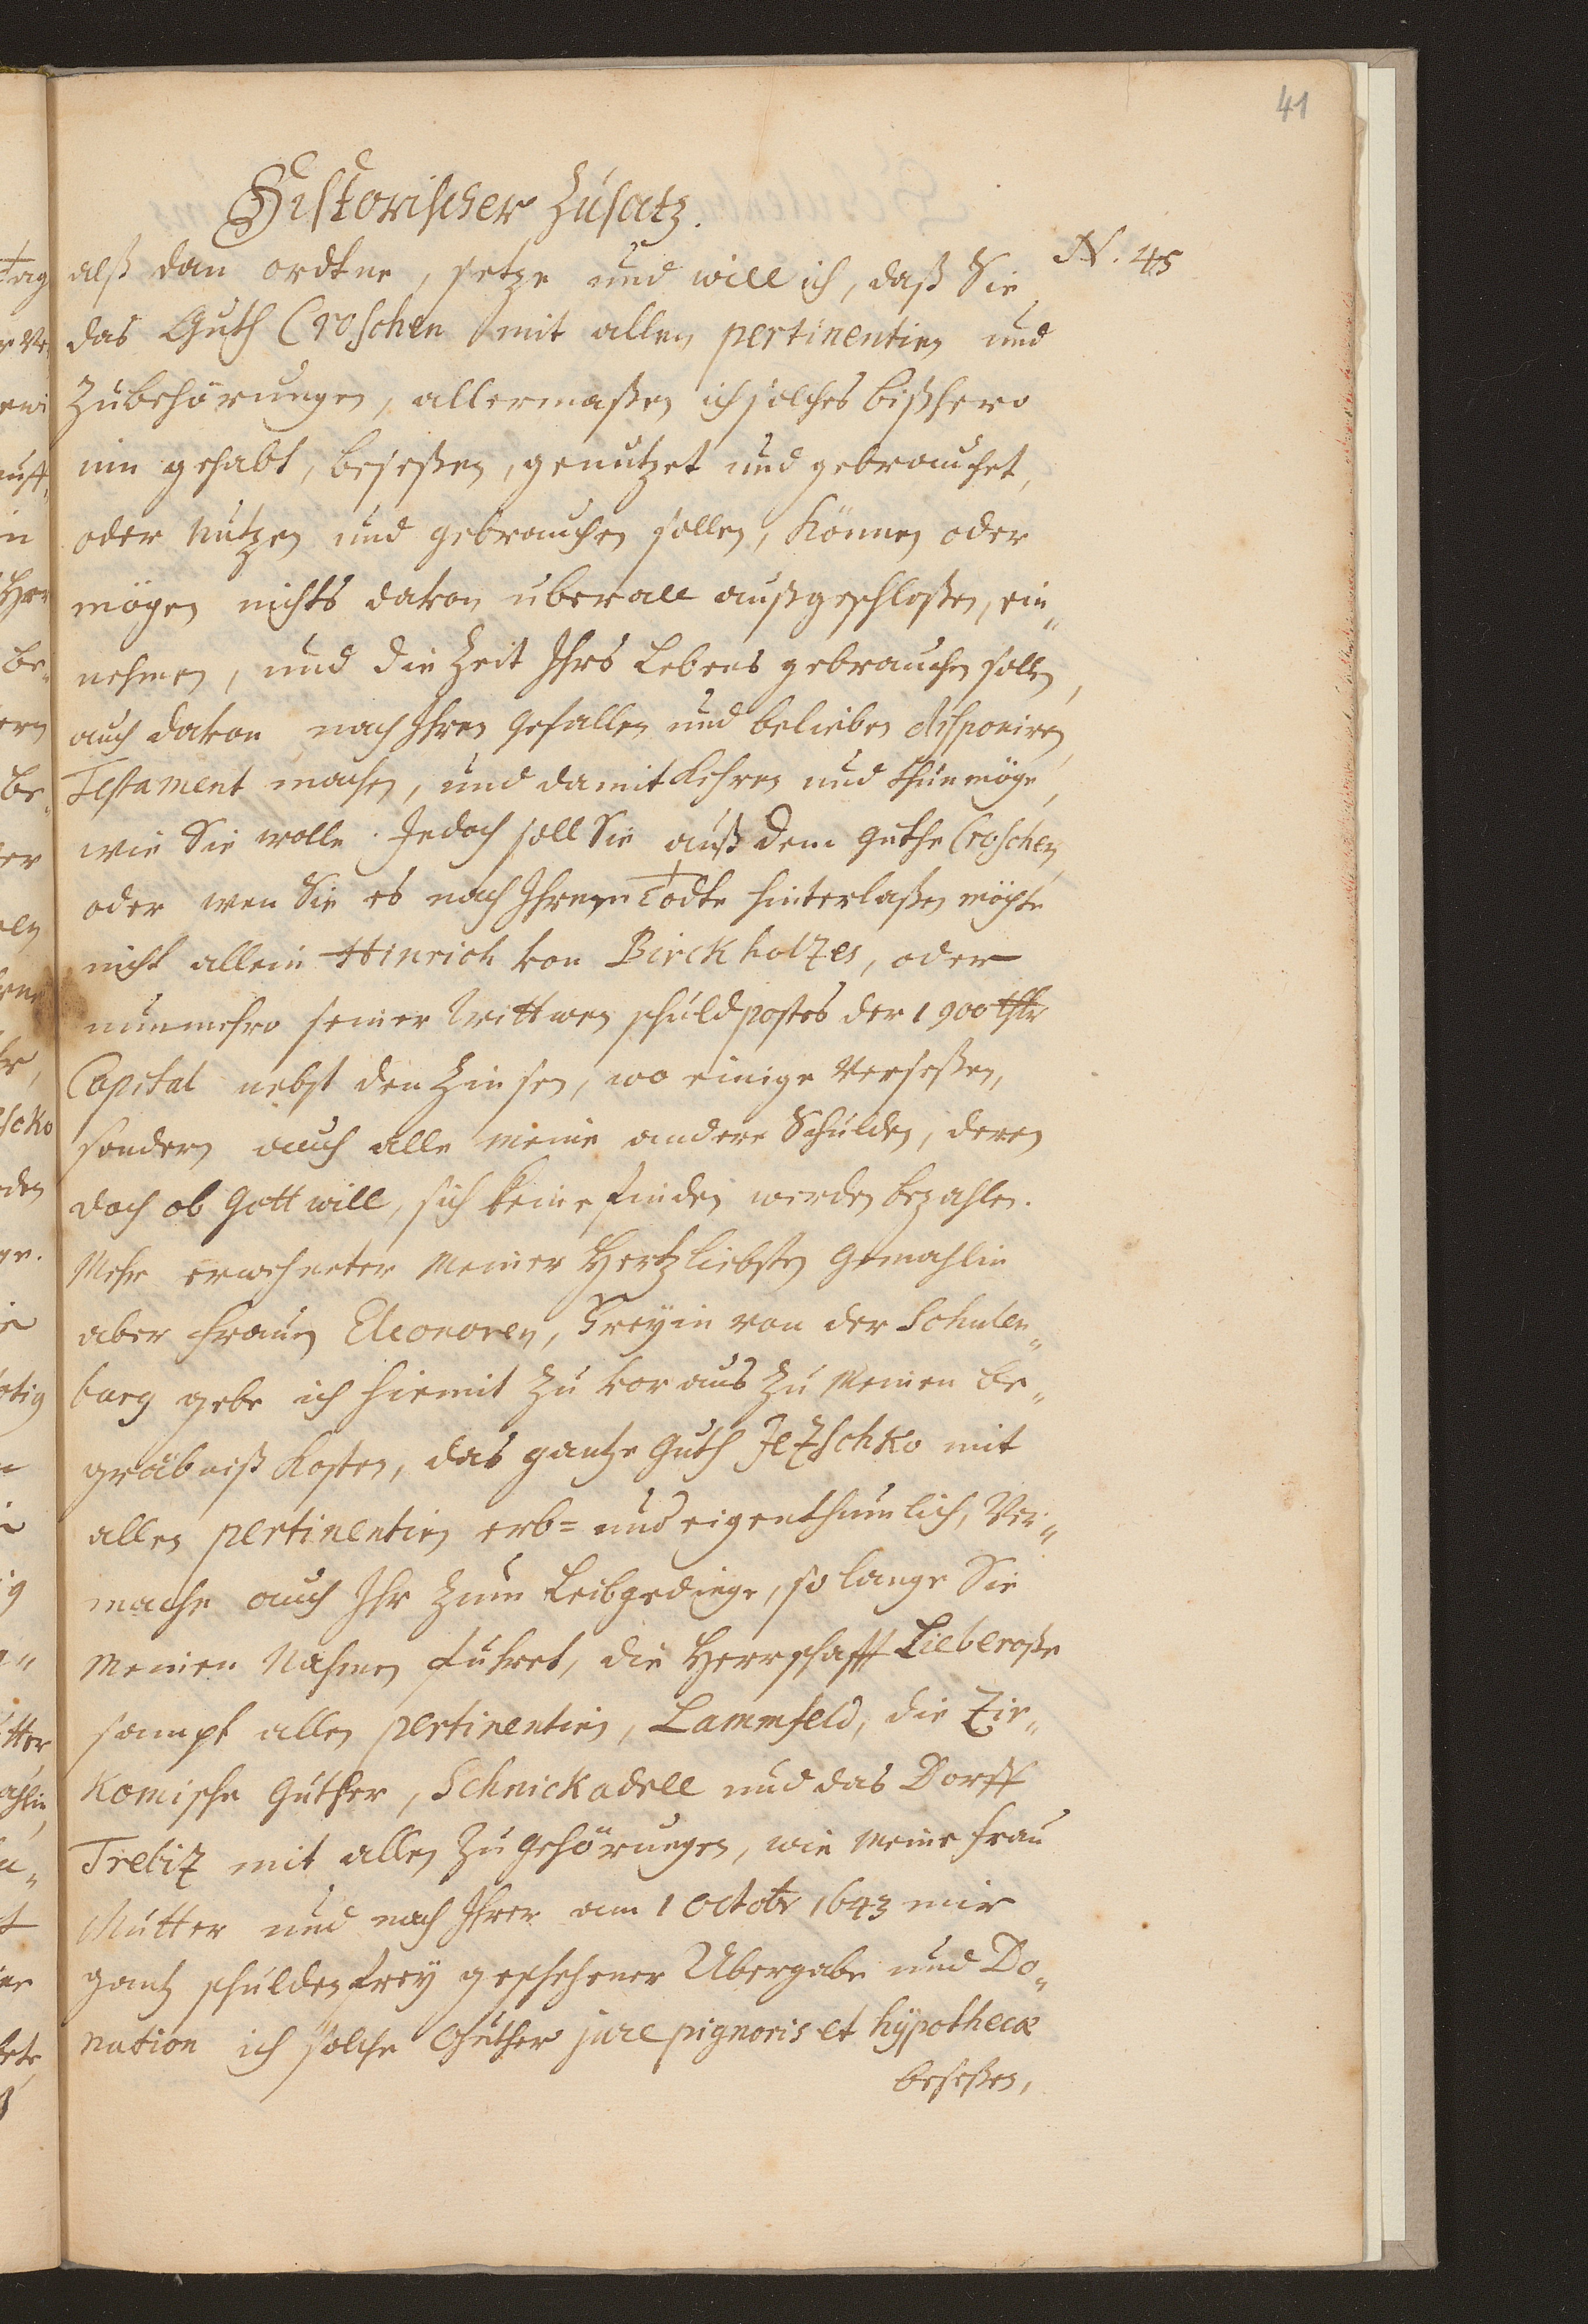 41
Historischer Zusatz.
N. 45
alß dan ordtne, setze und will ich, daß Sie
das Guth Croschen mit allen pertinentien und
Zubehörungen, allermaßen ich solches bißhero
inn gehabt, beseßen, genutzet und gebrauchet,
oder nutzen und gebrauchen sollen, können oder
mögen nichts davon uberall außgeschloßen, ein„
nehmen, und die Zeit Ihrs Lebens gebrauchen sollen,
auch davon nach Ihren gefallen und belieben disponiren,
Testament machen, und damit kehren und thun möge,
wie Sie wolle. Jedoch soll Sie auß dem Guthe Croschen,
oder wen Sie es nach Ihrem Todte hinterlaßen möchte
nicht allein Hinrich von Birckholtzes, oder
nunmehro seiner Wittwen schuldpostes der 1900 thlr
Capital nebst den Zinsen, wo einige verseßen,
sondern auch alle meine andere Schulden, deren
doch ob Gott will, sich keine finden werden bezahlen.
Mehr erwehneter meiner Hertzliebsten Gemahlin
aber frauen Eleonoren, Freyin von der Schulen„
burg gebe ich hiemit zu voraus zu meinen Be„
gräbniß kosten, das gantze Guth Jetzschko mit
allen pertinentien erb= und eigenthumlich, Ver„
mache auch Ihr zum Leibgedinge, so lange Sie
meinen Nahmen fuhret, die Herrschafft Lieberoße
sampt allen pertinentien, Lammfeld, die Zir„
komische Guther, Schnickadell und das Dorff
Trebitz mit allen zugehörungen, wie meine frau
Mutter und nach Ihrer am 1 Octobr 1643 mir
gantz schulden frey geschehener Ubergabe und Do„
nation ich solche Guther jure pignoris et hÿpothecæ
beseßen,